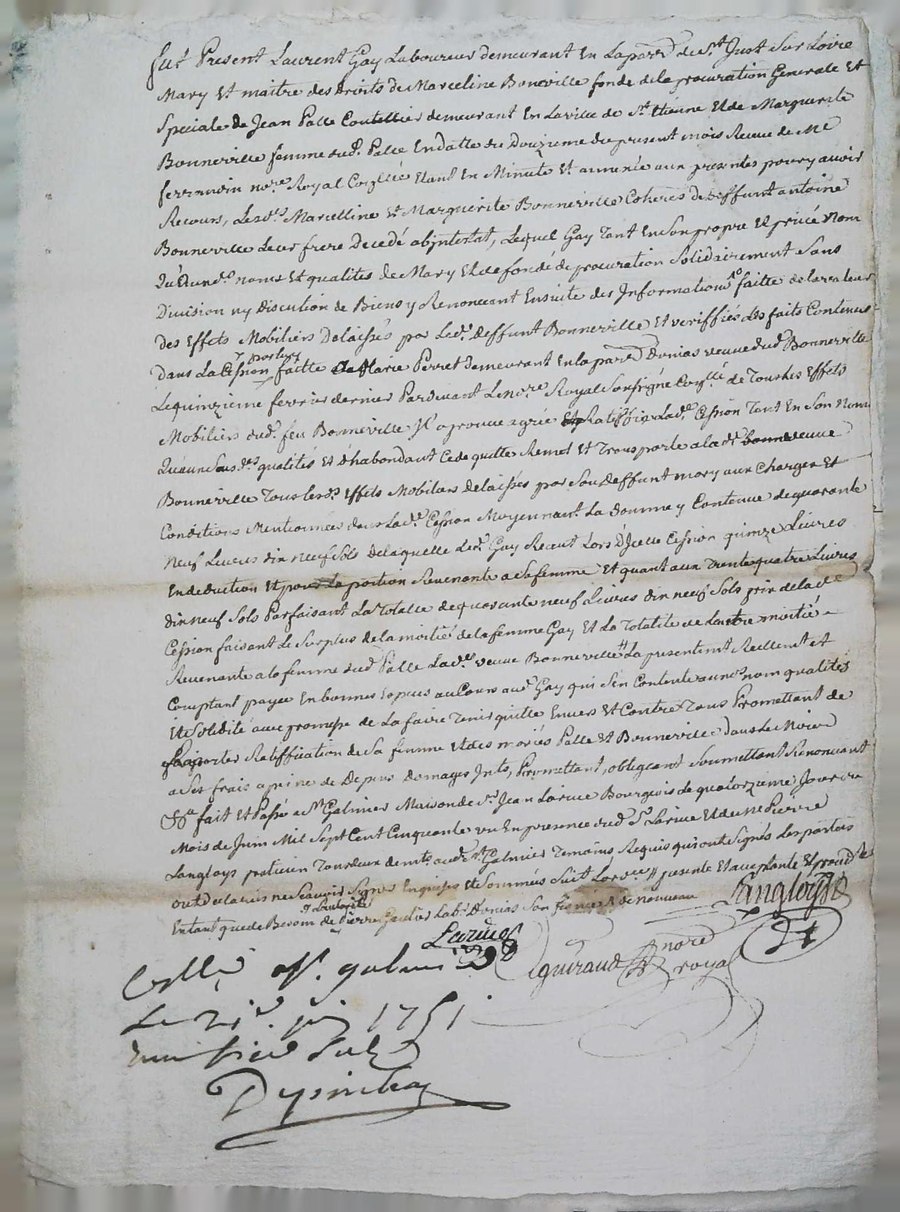 fut Present Laurent Gay Laboureur demeurant En La parr.e de St. Just Sur Loire
Mary Et maitre des Droits de Marceline Boneville fonde de la procuration Generale Et
Speciale de Jean Palle Coutellier demeurant En La ville de St. Etienne Et de Marguerite
Bonneville femme dud. Palle En datte du Douzieme du present mois Reçue de Me
nore. Royal Etant En Minute Et annexée aux presentes pour y avoir
Recours, Lesd. Marcelline Et Marguerite Bonneville Coheres de deffunt antoine
Bonneville Leur frere Decedé abintestat, Lequel Gay Tant En Son propre Et privé Nom
qu'Aud. noms Et qualités de Mary Et de fondé de procuration Solidairement Sans
Division ny Discution de Biens y Renonceant Ensuite des Informations faitte de la valeur
des Effets Mobiliers Delaissés par Led. Deffunt Bonneville Et verifiiés des faits Contenus
Dans La Cession faitte Marie Perret demeurant En la parr. veuve dud. Bonneville
Le quinzieme fevrier dernier Pardevant Le nore. Royal Sousigné de Tous Les Effets
Mobiliers dud. feu Bonneville Il aprouve agrée Ratiffie Lad. Cession Tant En Son Nom
qu'aux Susd. qualités Et d'habondant Cede quitte Remet Et Transporte a lad. veuve
Bonneville Tous Lesd. Effets Mobiliers Delaissés par Son deffunt mary aux Charges Et
Conditions Mentionnées dans Lad. Cession Moyennant La Somme y Contenue de quarante
Neuf Livres dix neuf Sols de laquelle Led. Gay Reçut Lors d'Icelle Cession quinze Livres
En deduction Et pour La portion Revenante a Sa femme Et quant aux Trente quatre Livres
dix neuf Sols Parfaisant La Totalle de quarante neuf Livres dix neuf Sols prix de lad.
Cession faisant Le Surplus de la moitié de la femme Gay Et La Totalité de Lautre moitié
Revenante a la femme dud. Palle Lad. veuve Bonneville La presentemt. Reellemt. et
Comptant payée En bonnes Especes au Cours aud. Gay qui S'en Contente auxd. nom qualités
Et Solidité avec promesse de La faire Tenir quitte Envers Et Contre Tous Promettant de
Raporter Ratiffication de Sa femme Et des mariés Palle Et Bonneville Dans Le Mois
a Ses frais a peine de Depens Domages Ints. Promettant, obligeant Soumettant Renonceant
&a. fait Et Passé a St. Galmier Maison de Sr. Jean Larue Bourgeois Le quatorzieme Jour du
Mois de Juin Mil Sept Cent Cinquante un En presence dud. Sr. Larue Et de Me Pierre
Langloys praticien Tous deux demts. aud. St. Galmier Temoins Requis qui ont Signés Les parties
ont Declarés ne Scavoir Signer Enquises Et Sommées Suit L'aveu presente Et acceptante Et
En tant que de Besoin de Pierre
Langloys
Larue
guiraud nore royal
Collé a St. galmier
Le 21e. juin 1751